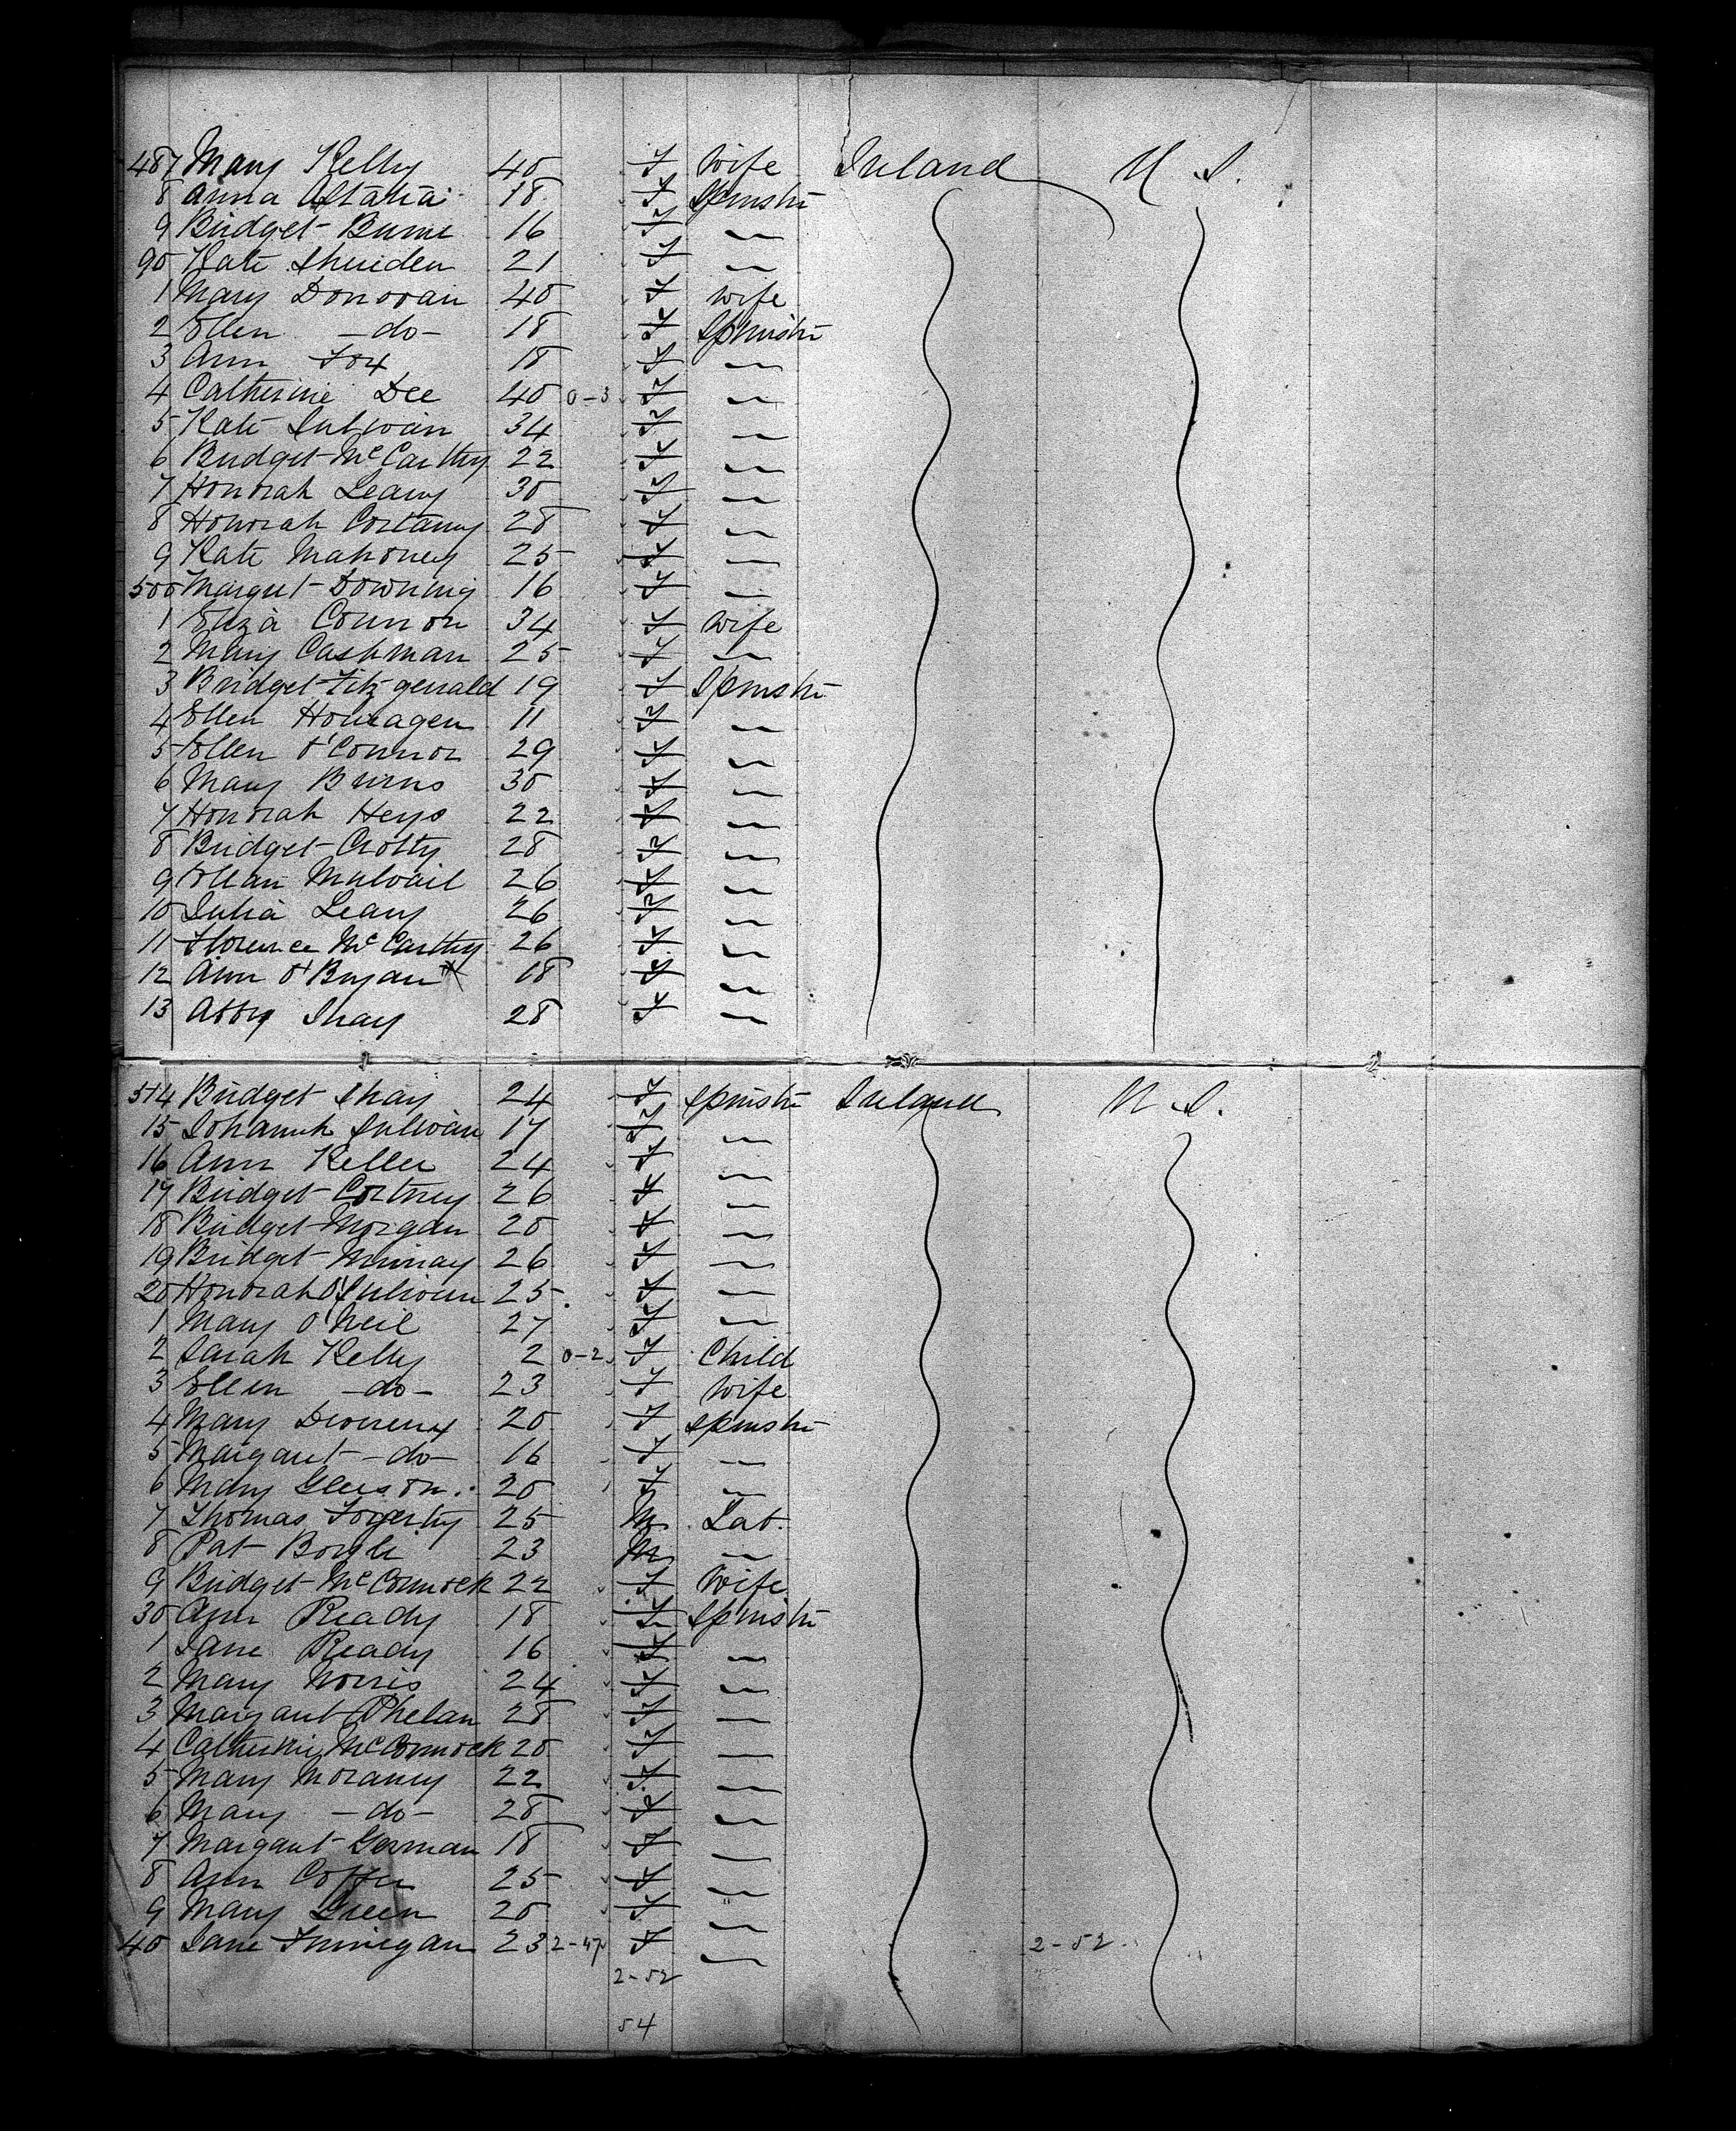 487 Mary Kelly 40 F Wife Ireland U S.
8 Anna 18 F Spinster
9 Bridget Burne 16 F "
90 Kate Shreiden 21 F "
1 Mary Donovan 40 F Wife
2 Ellen -do- 18 F Spinster
3 Ann Fox 18 F "
4 Catherine Dee 40 0-3 F "
5 Kate Sulivan 34 F "
6 Bridget McCarthy 22 F "
7 Honorah Leary 30 F "
8 Honorah Cortany 28 F "
9 Kate Mahoney 25 F "
500 Margret Downing 16 F "
1 Eliza Connor 34 F Wife
2 Mary Cashman 25 F "
3 Bridget Fitzgerrald 19 F Spinster
4 Ellen Houragen 11 F "
5 Ellen O'Connor 29 F "
6 Mary Burns 30 F "
7 Honorah Heys 22 F "
8 Bridget Crotty 28 F "
9 Ellen 26 F "
10 Julia Leary 26 F "
11 Florence McCarthy 26 F "
12 Ann O'Bryan 18 F "
13 Abby Shay 28 F "
514 Bridget Shay 24 F Spinster Ireland U S.
15 Johannh Sulivan 17 F "
16 Ann Keller 24 F "
17 Bridget Cortney 26 F "
18 Bridget Morgan 20 F "
19 Bridget Murray 26 F "
20 Honorah O'Sulivan 25 F "
1 Mary O'Neil 27 F "
2 Sarah Kelly 2 0-2 F Child
3 Ellen -do- 23 F Wife
4 Mary 20 F Spinster
5 Margaret -do- 16 F "
6 Mary Gleeson 20 F "
7 Thomas Fogerty 25 M Lab.
8 Pat 23 M "
9 Bridget McCormock 22 F Wife
30 Ann Ready 18 F Spinster
1 Jane Ready 16 F "
2 Mary Norris 24 F "
3 Margaret Phelan 28 F "
4 Catherine McCormock 20 F "
5 Mary Moraney 22 F "
6 Mary -do- 28 F "
7 Margaret Gorman 18 F "
8 Ann 25 F "
9 Mary Green 20 F "
40 Jane Finnegan 23 2-47 F " 2-52
2-52
54